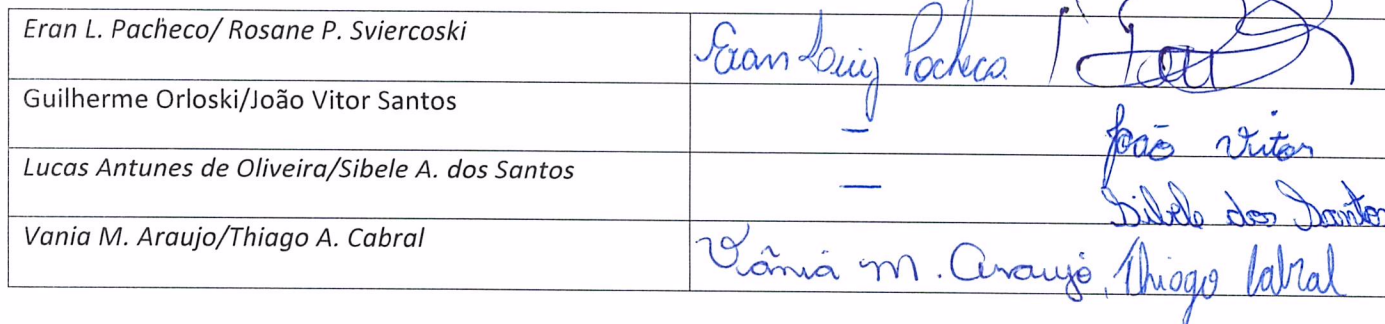 Eran L. Pacheco/ Rosane P. Sviercoski
Eran Luiz Pacheco /
Guilherme Orloski/João Vitor Santos
— João Vitor
Lucas Antunes de Oliveira/Sibele A. dos Santos
— Sibele dos Santos
Vania M. Araujo/Thiago A. Cabral
Vânia M. Araujo, Thiago Cabral